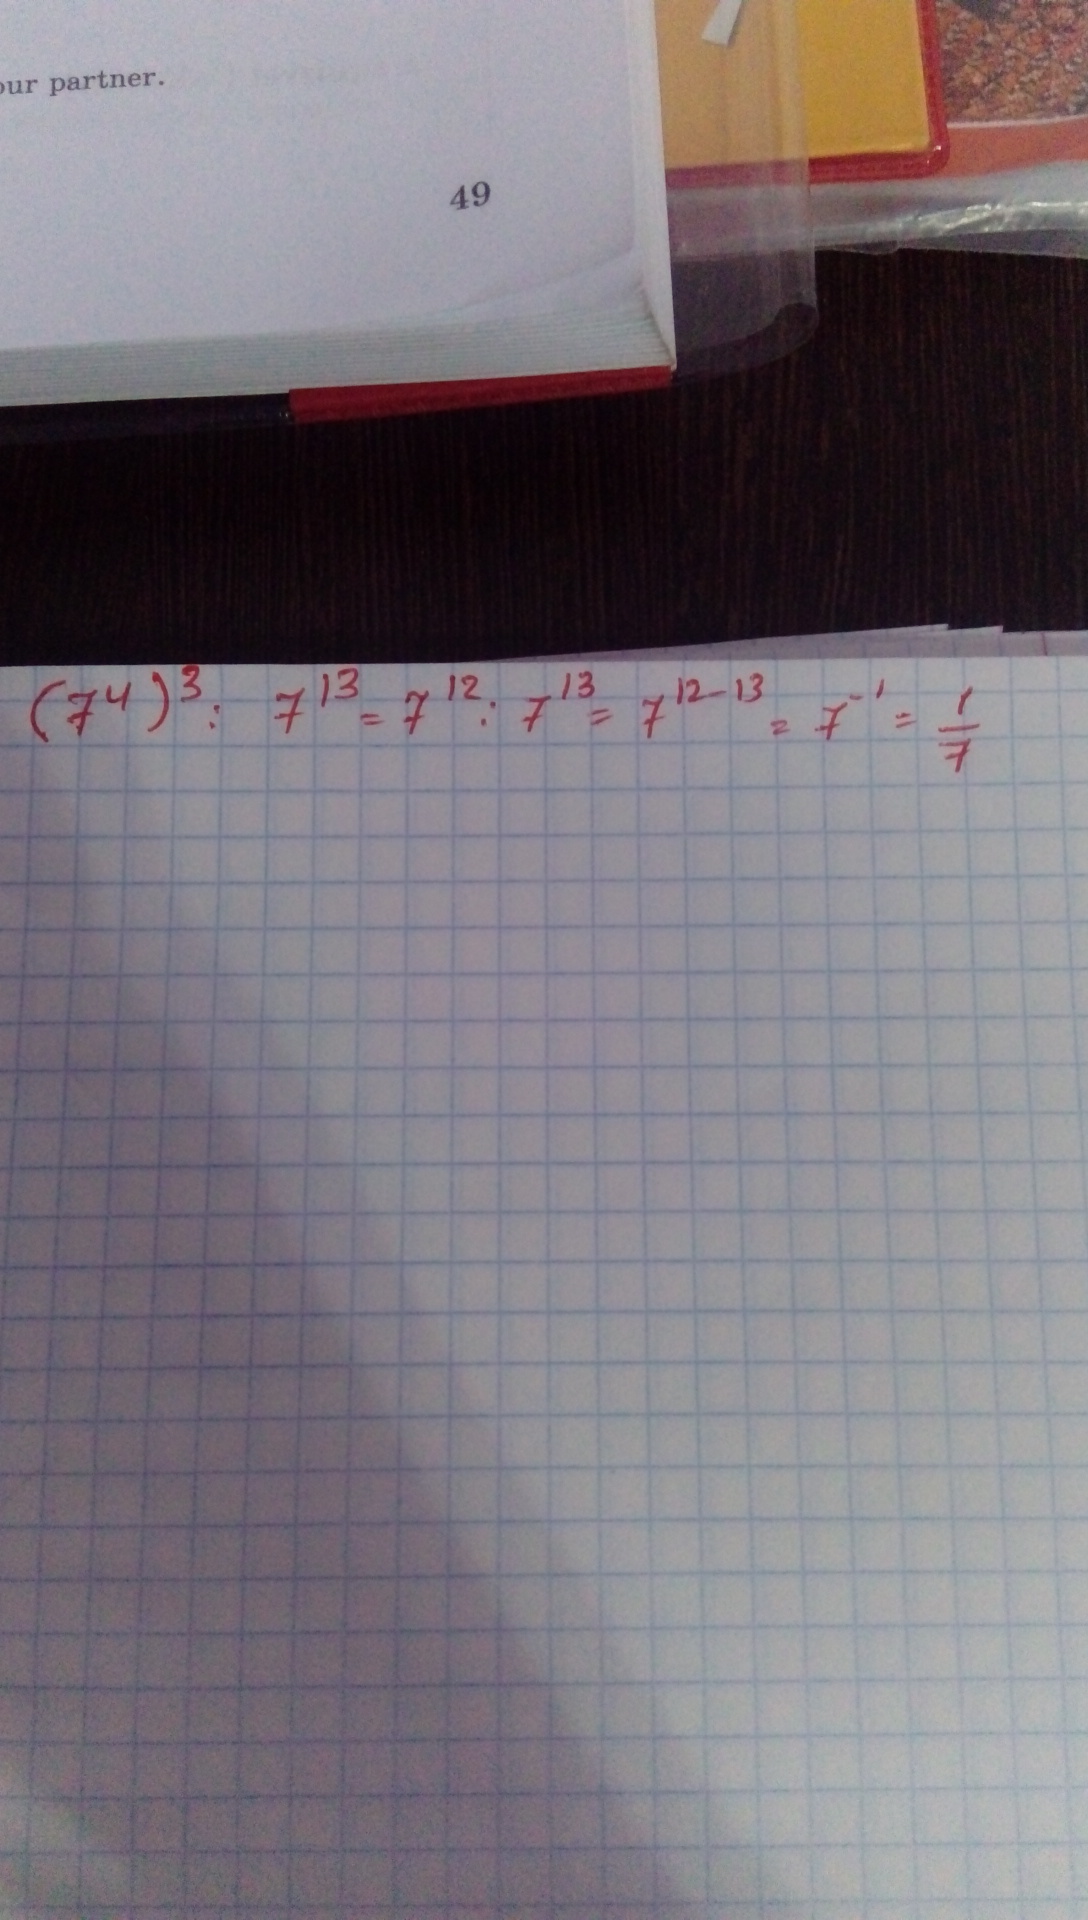 our partner.
49
(7⁴)³: 7¹³ = 7¹² : 7¹³ = 7¹²⁻¹³ = 7⁻¹ = 1/7